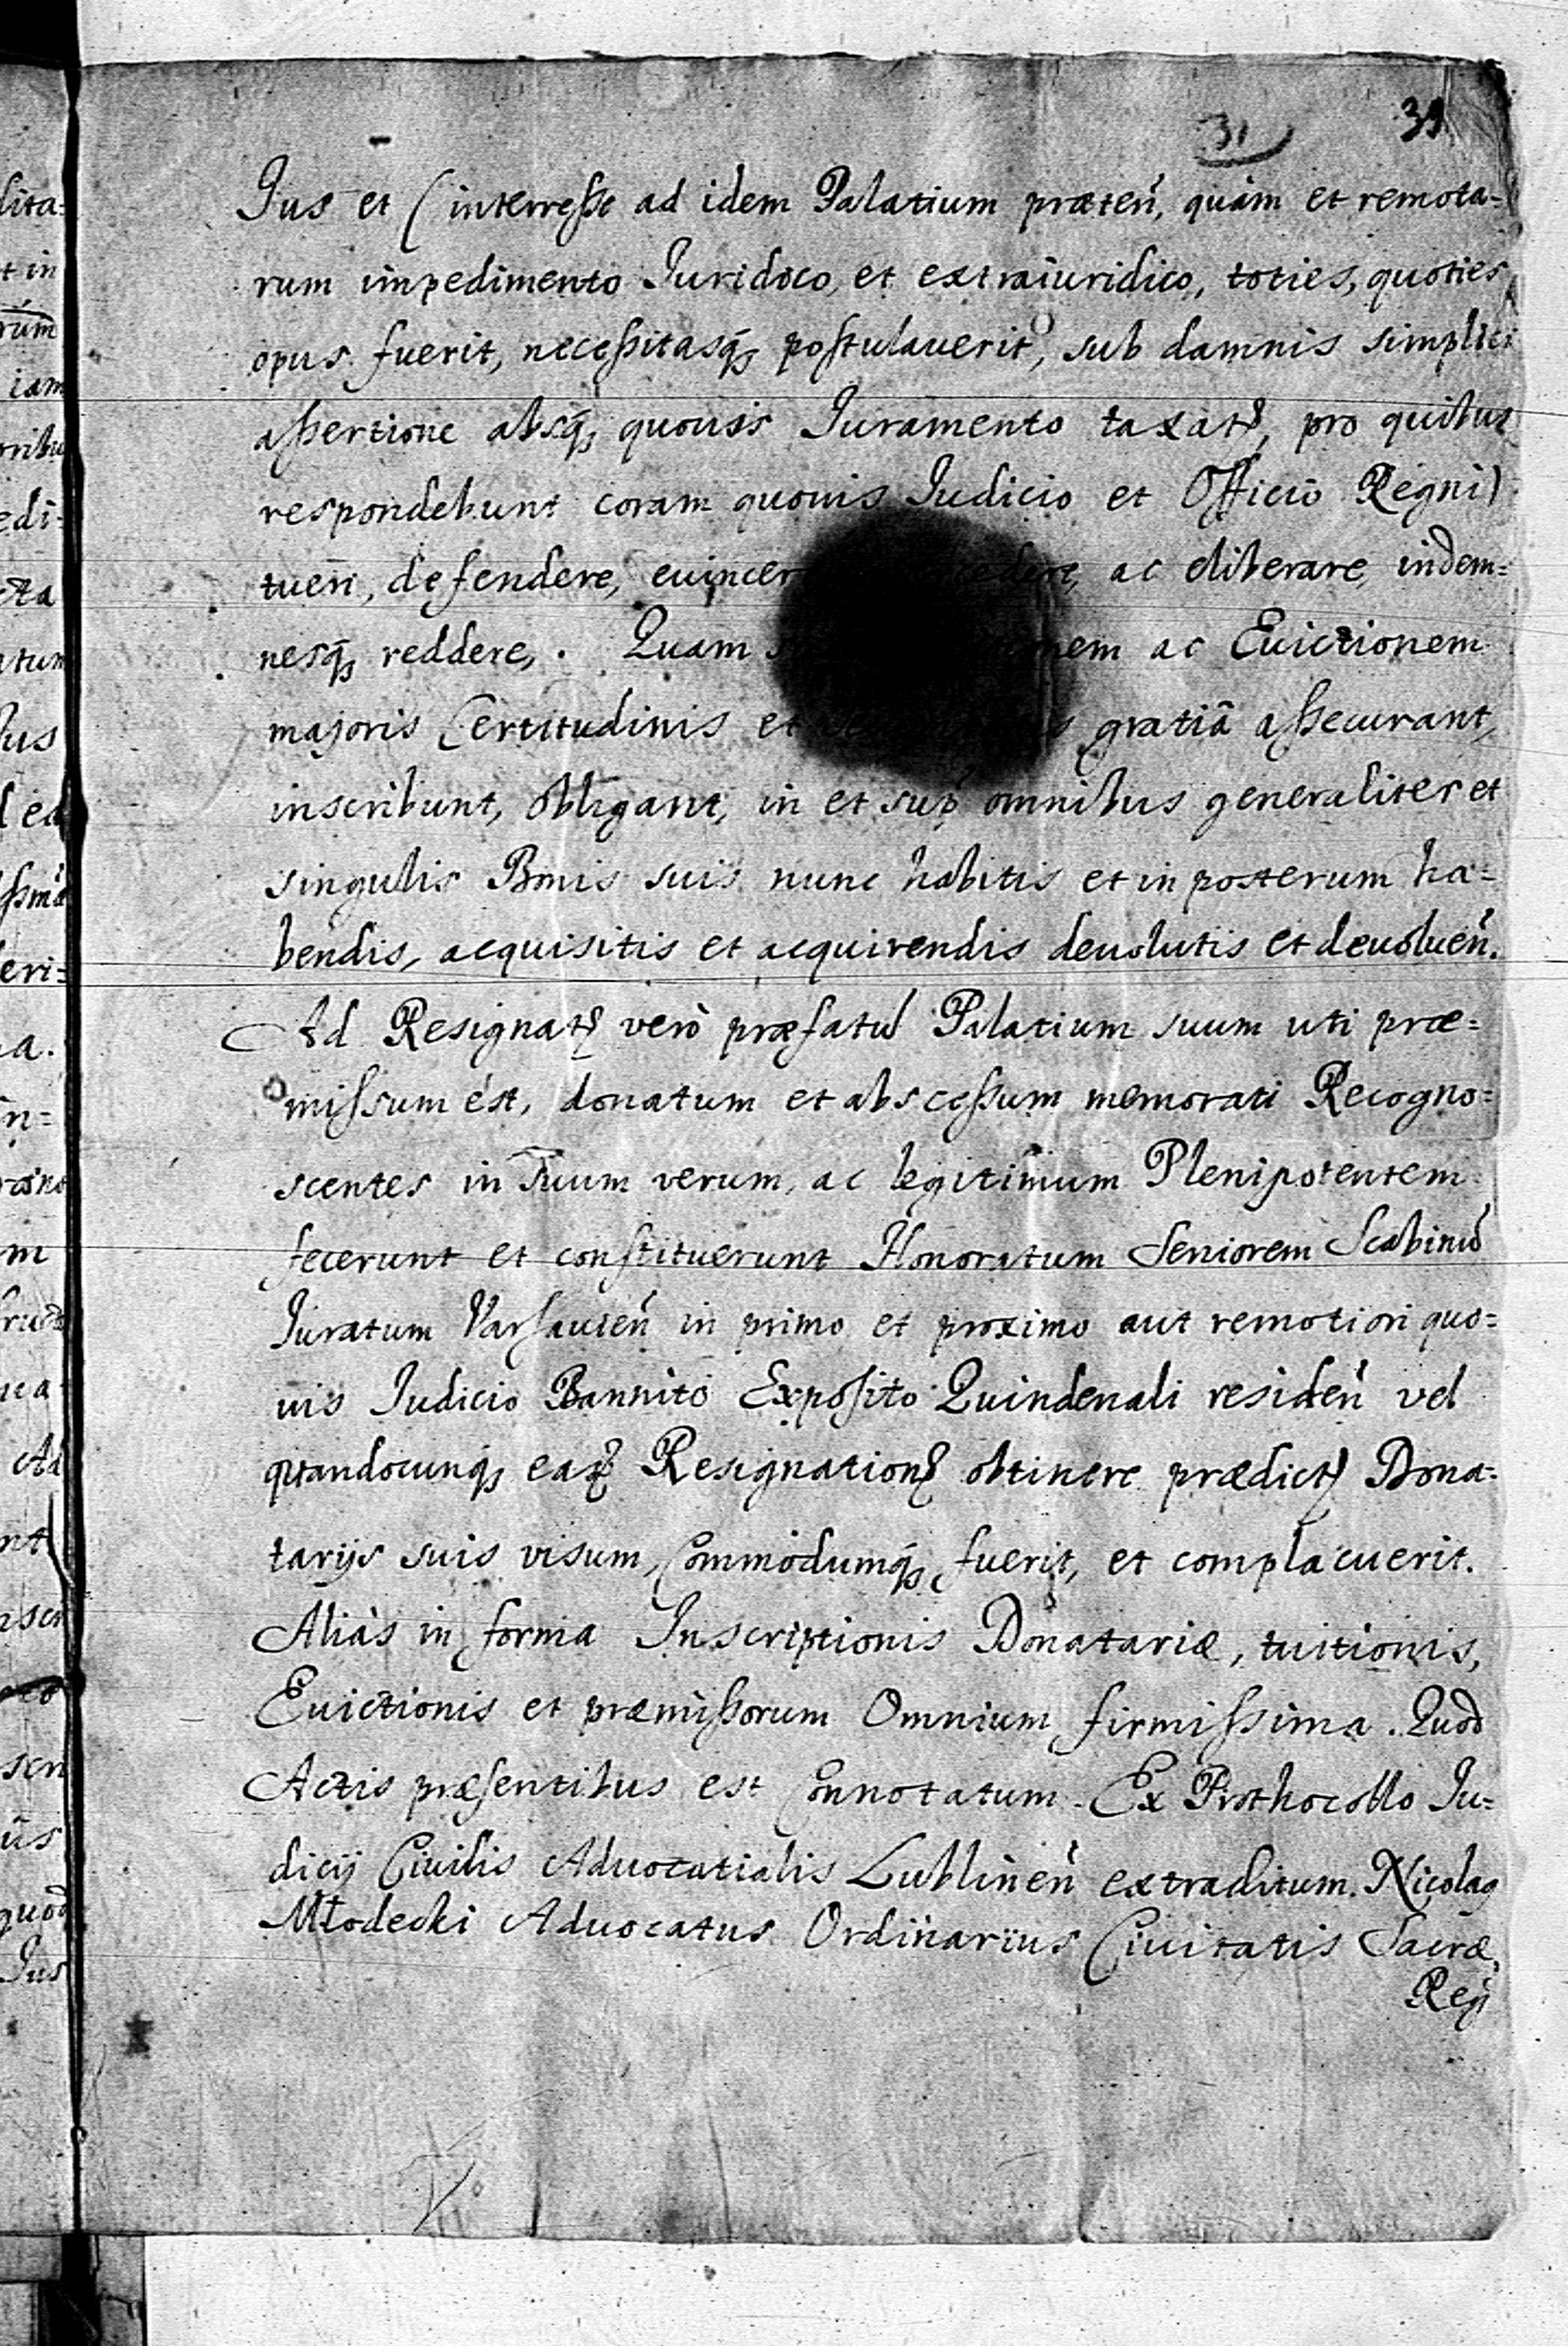 31 39
Jus et interresse ad idem Palatium præteń, quàm et remota=
rum impedimento Juridoco, et extraiuridico, toties, quoties
opus fuerit, necessitasq́; postulauerit, sub damnis simplici
assertione absq́; quouis Juramento taxat, pro quibus
respondebunt coram quouis Judicio et Officio Regni)
tueri, defendere, euincer ac eliberare, indem=
nesq́; reddere,. Quam ac Euictionem
majoris Certitudinis et gratiâ assecurant,
inscribunt, obligant, in et sup omnibus generaliter et
singulis Bonis suis nunc habitis et in posterum ha=
bendis, acquisitis et acquirendis deuolutis et deuolueń.
Ad Resignat verò præfatu Palatium suum uti præ=
missum est, donatum et abscessum memorati Recogno=
scentes in suum verum, ac legitimum Plenipotentem
fecerunt et constituerunt Honoratum Seniorem Scabinū
Juratum Varsauień in primo et proximo aut remotiori quo=
uis Judicio Bannito Exposito Quindenali resideń vel
quandocunq́; Resignation obtinere prædict Dona=
tarijs suis visum, Commodumq́; fuerit, et complacuerit.
Aliàs in forma Inscriptionis Donatariæ, tuitionis,
Euictionis et præmissorum Omnium firmissima. Quod
Actis præsentibus est Connotatum. Ex Prothocollo Ju=
dicij Ciuilis Aduocatialis Lublineń extraditum. Nicolaq
Młodecki Aduocatus Ordinarius Ciuitatis Sacræ
Reg